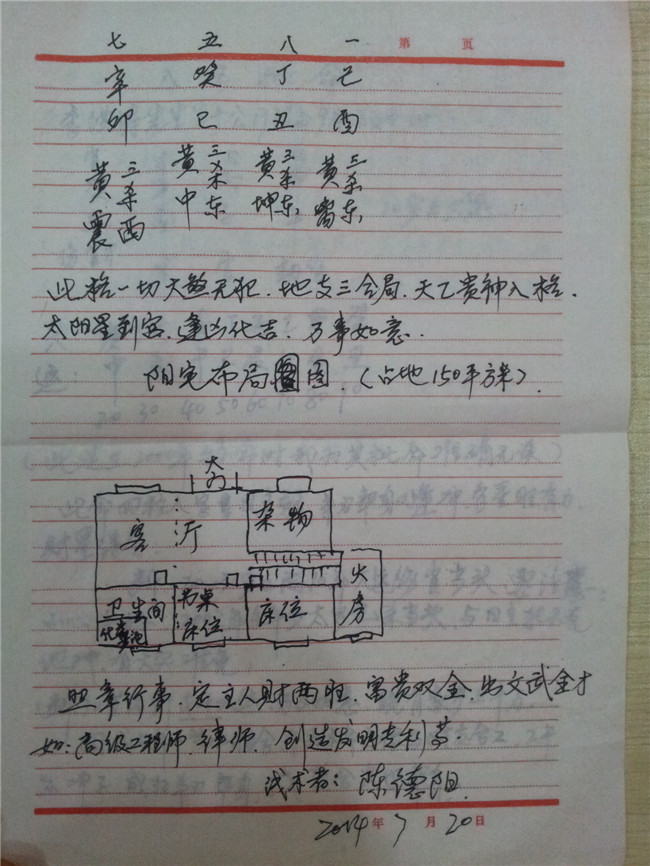 七 五 八 一 第 页
辛 癸 丁 己
卯 巳 丑 酉
黄 三杀 黄 三杀 黄 三杀 黄 三杀
震 西 中 东 坤 东 离 东
此格一切大煞无犯.地支三合局.天乙贵神入格.
太阳星到宫.逢凶化吉.万事如意.
阳宅布局图.(占地150平方米).
大门
客厅 杂物
火房
卫生间 书桌 床位 床位
化粪池
照章行事.定主人财两旺.富贵双全.出文武全才
如:高级工程师.律师.创造发明专利等.
浅术者:陈德阳.
2014年7月20日